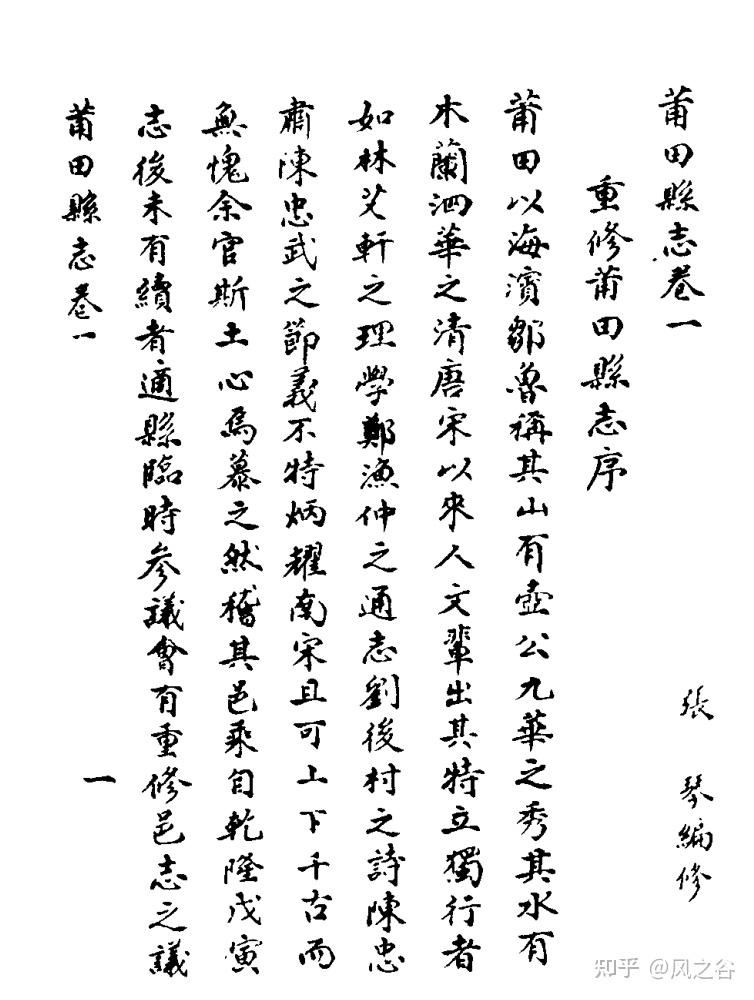 莆田縣志卷一
張琴編修
重修莆田縣志序
莆田以海濱鄒魯稱其山有壺公九華之秀其水有
木蘭泗華之清唐宋以來人文輩出其特立獨行者
如林艾軒之理學鄭漁仲之通志劉後村之詩陳忠
肅陳忠武之節義不特炳耀南宋且可上下千古而
無愧余官斯土心焉慕之然稽其邑乘自乾隆戊寅
志後未有續者適縣臨時參議會有重修邑志之議
莆田縣志卷一
一
知乎 @风之谷